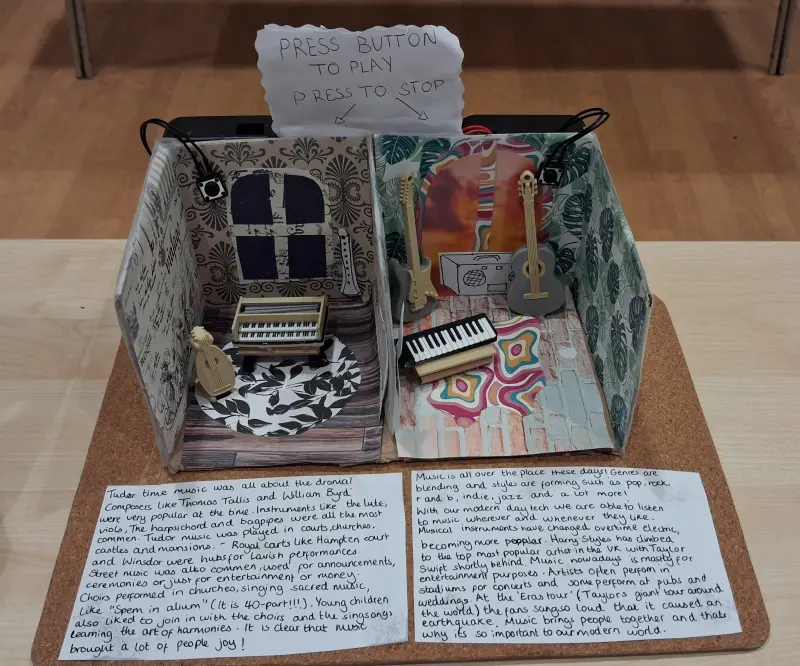 PRESS BUTTON
TO PLAY
PRESS TO STOP
Tudor time music was all about the drama!
Composers like Thomas Tallis and William Byrd
were very popular at the time. Instruments like the lute,
viols, The harpsichord and bagpipes were all the most
common. Tudor music was played in courts, churches,
castles and mansions. Royal carts like Hampton court
and Winsdor were hubs for lavish performances.
Street music was also common, used for announcements,
ceremonies or just for entertainment or money.
Choirs performed in churches, singing sacred music,
like "Spem in alium" (It is 40-part!!!). Young children
also liked to join in with the choirs and the singsongs
learning the art of harmonies. It is clear that music
brought a lot of people joy!
Music is all over the place these days! Genres are
blending and styles are forming such as pop, rock,
r and b, indie, jazz and a lot more!
With our modern day tech we are able to listen
to music wherever and whenever they like.
Musical instruments have changed overtime electric,
becoming more popular. Harry Styles has climbed
to the top most popular artist in the UK with Taylor
Swift shortly behind. Music nowadays is mostly for
entertainment purposes. Artists often perform in
stadiums for concerts and some perform at pubs and
weddings. At the 'Eras tour' (Taylors giant tour around
the world) the fans sang so loud that it caused an
earthquake. Music brings people together and thats
why it's so important to our modern world.